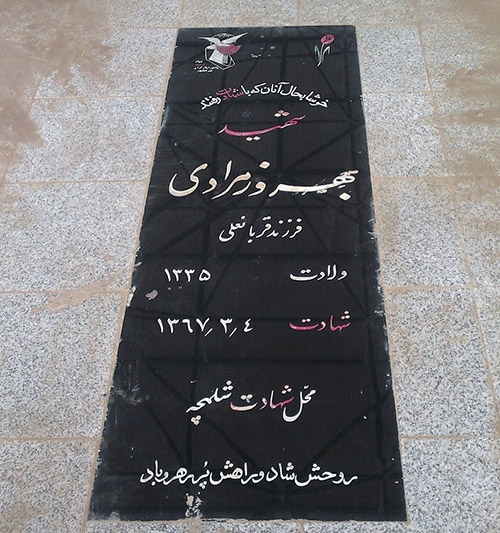 خوشا بحال آنان که با شهادت رفتند
شهید
بهروز مرادی
فرزند قربانعلی
ولادت ۱۳۳۵
شهادت ۱۳۶۷٫۳٫۴
محل شهادت شلمچه
روحش شاد و راهش پر رهرو باد